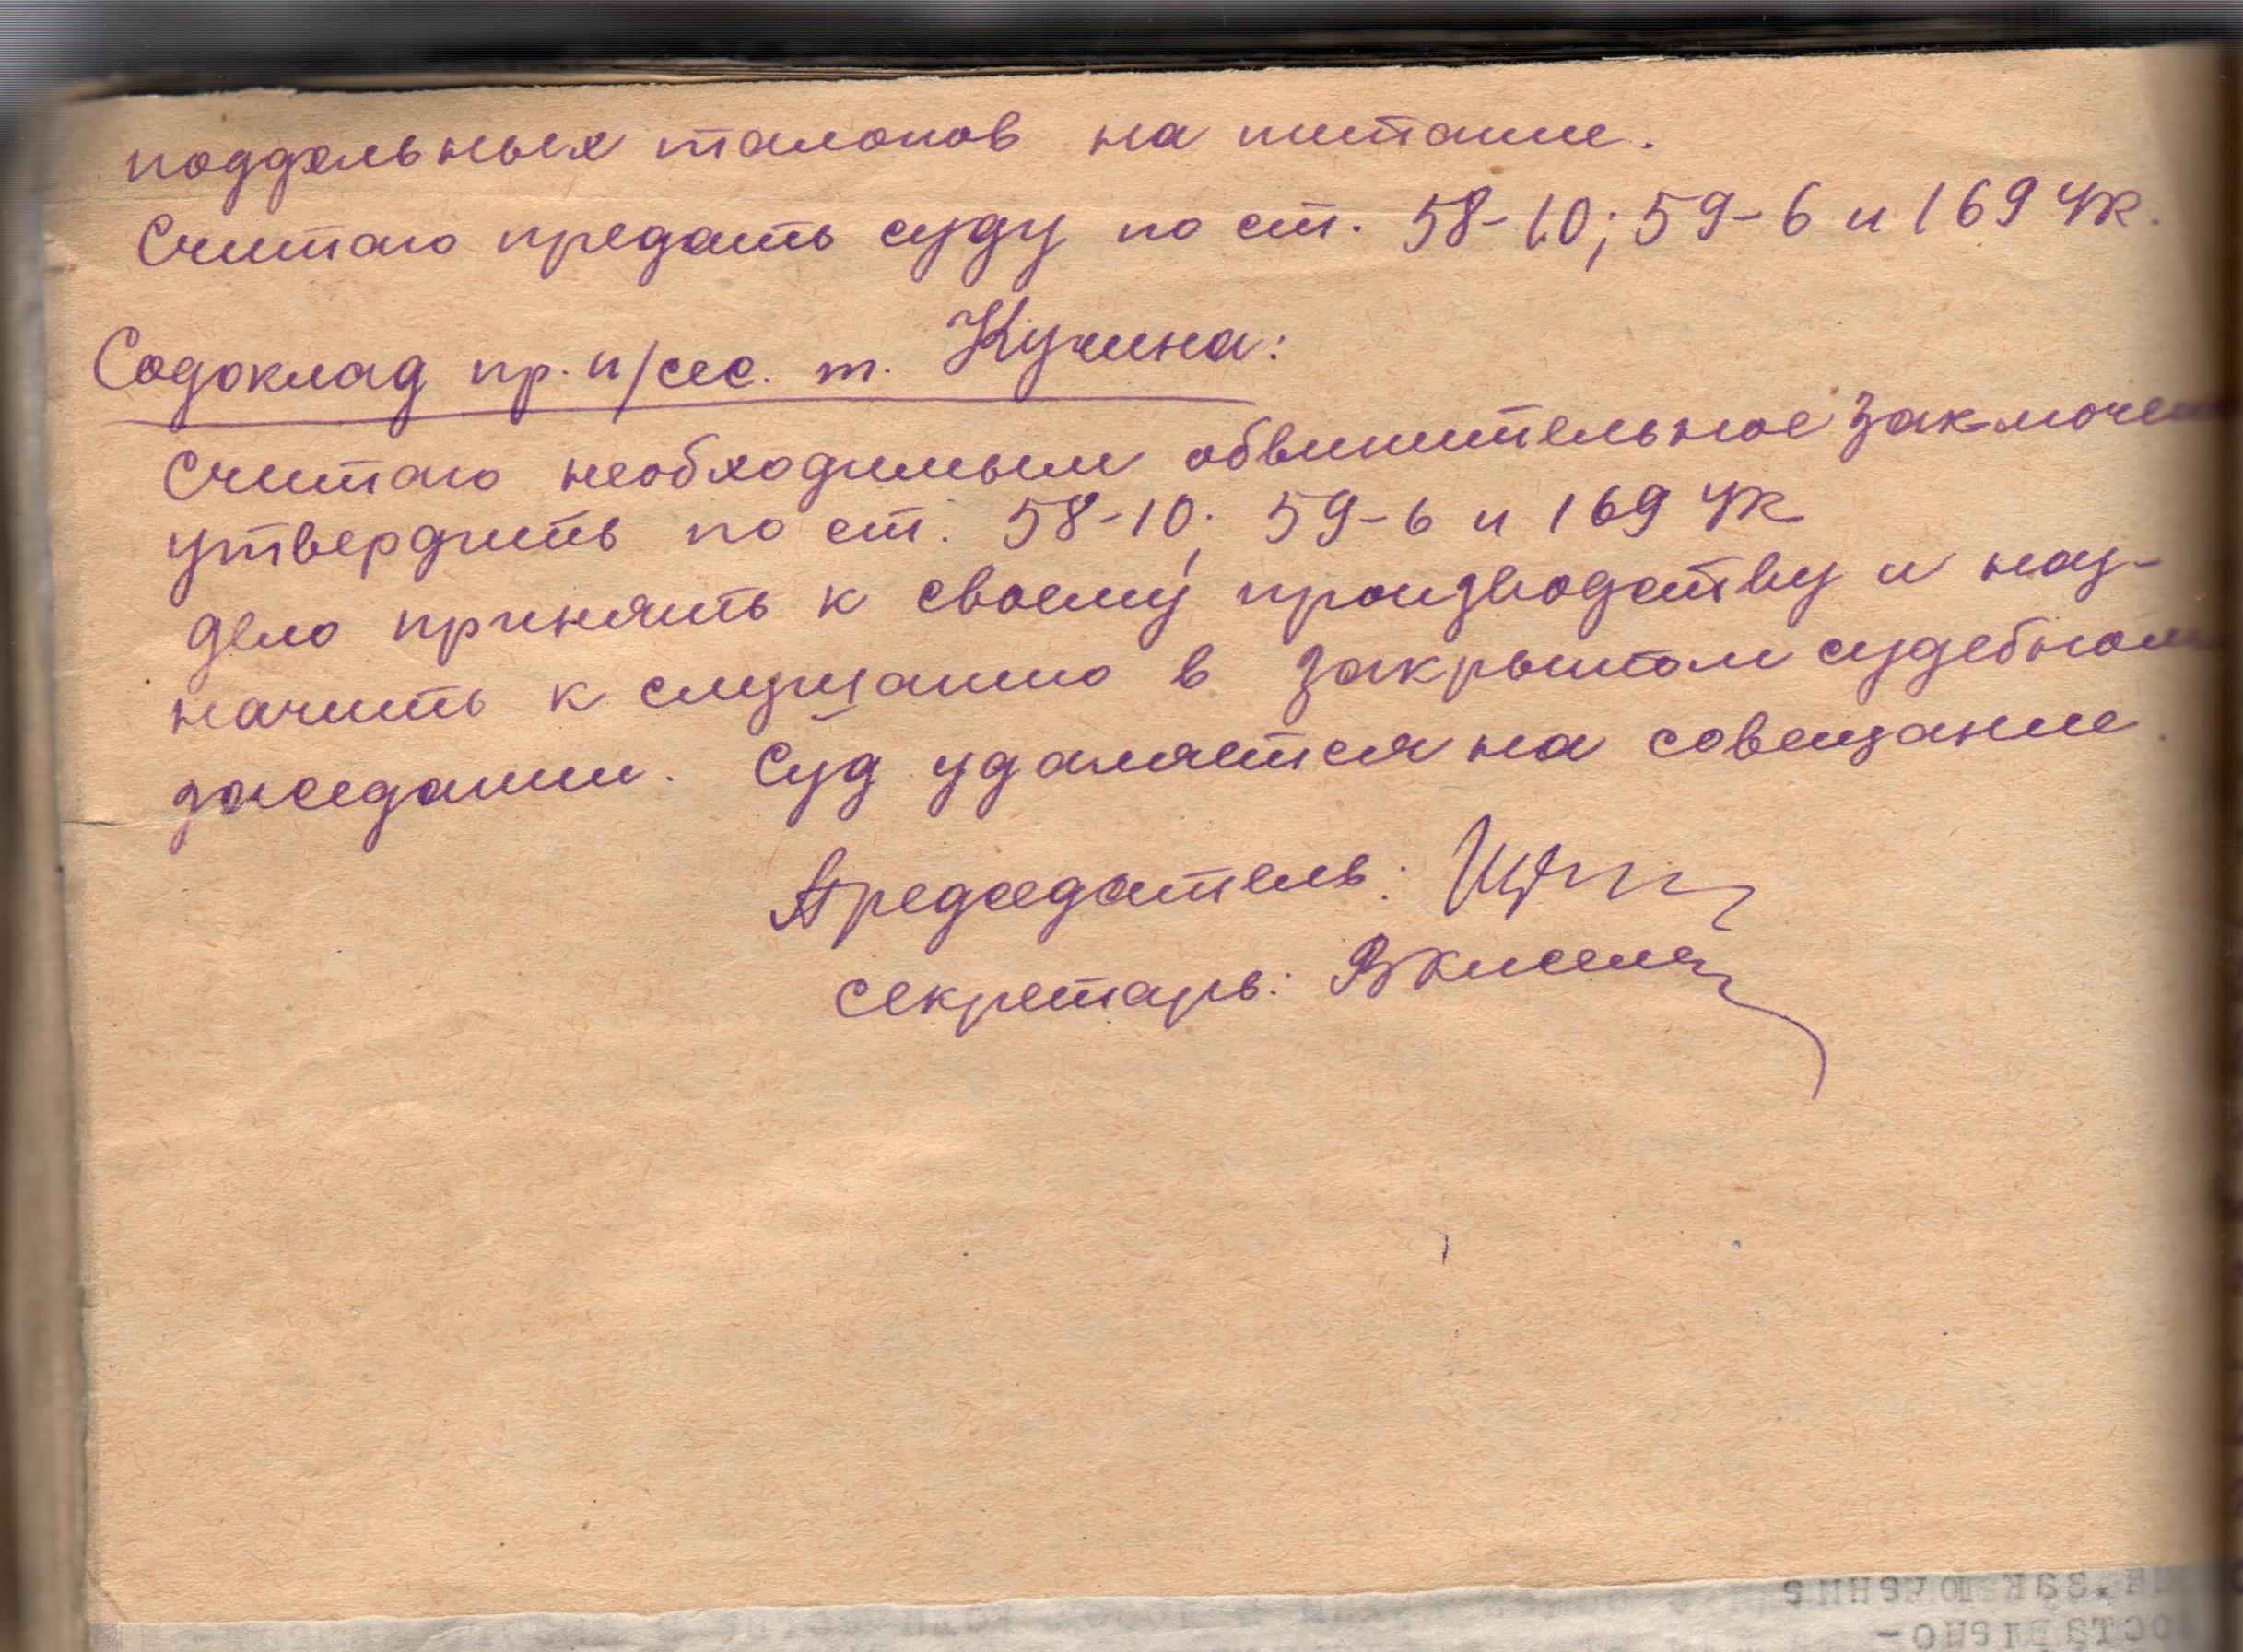 поддельных талонов на питание.
Считаю предать суду по ст. 58-10; 59-6 и 169 УК.
Содоклад пр. п/сес. т. Кучина:
Считаю необходимым обвинительное заключен
утвердить по ст. 58-10; 59-6 и 169 УК
дело принять к своему производству и наз-
начить к слушанию в закрытом судебном
заседании. Суд удаляется на совещание.
Председатель:
секретарь: ВКиселе
заключение
но-